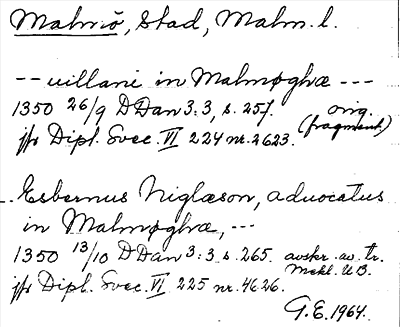 Malmö, Stad, Malm. l.
-- uillani in Malmøghæ ---
1350 26/9 DDan 3:3, s. 257. orig.
(fragment)
jfr Dipl. Svec. VI 224 nr. 2623.
Esbernus Niglæson, aduocatus
in Malmøghæ, --
1350 13/10 DDan 3:3 s. 265. avskr. av tr.
Mekl. U B.
jfr Dipl. Svec. VI 225 nr. 4626.
G.E. 1964.